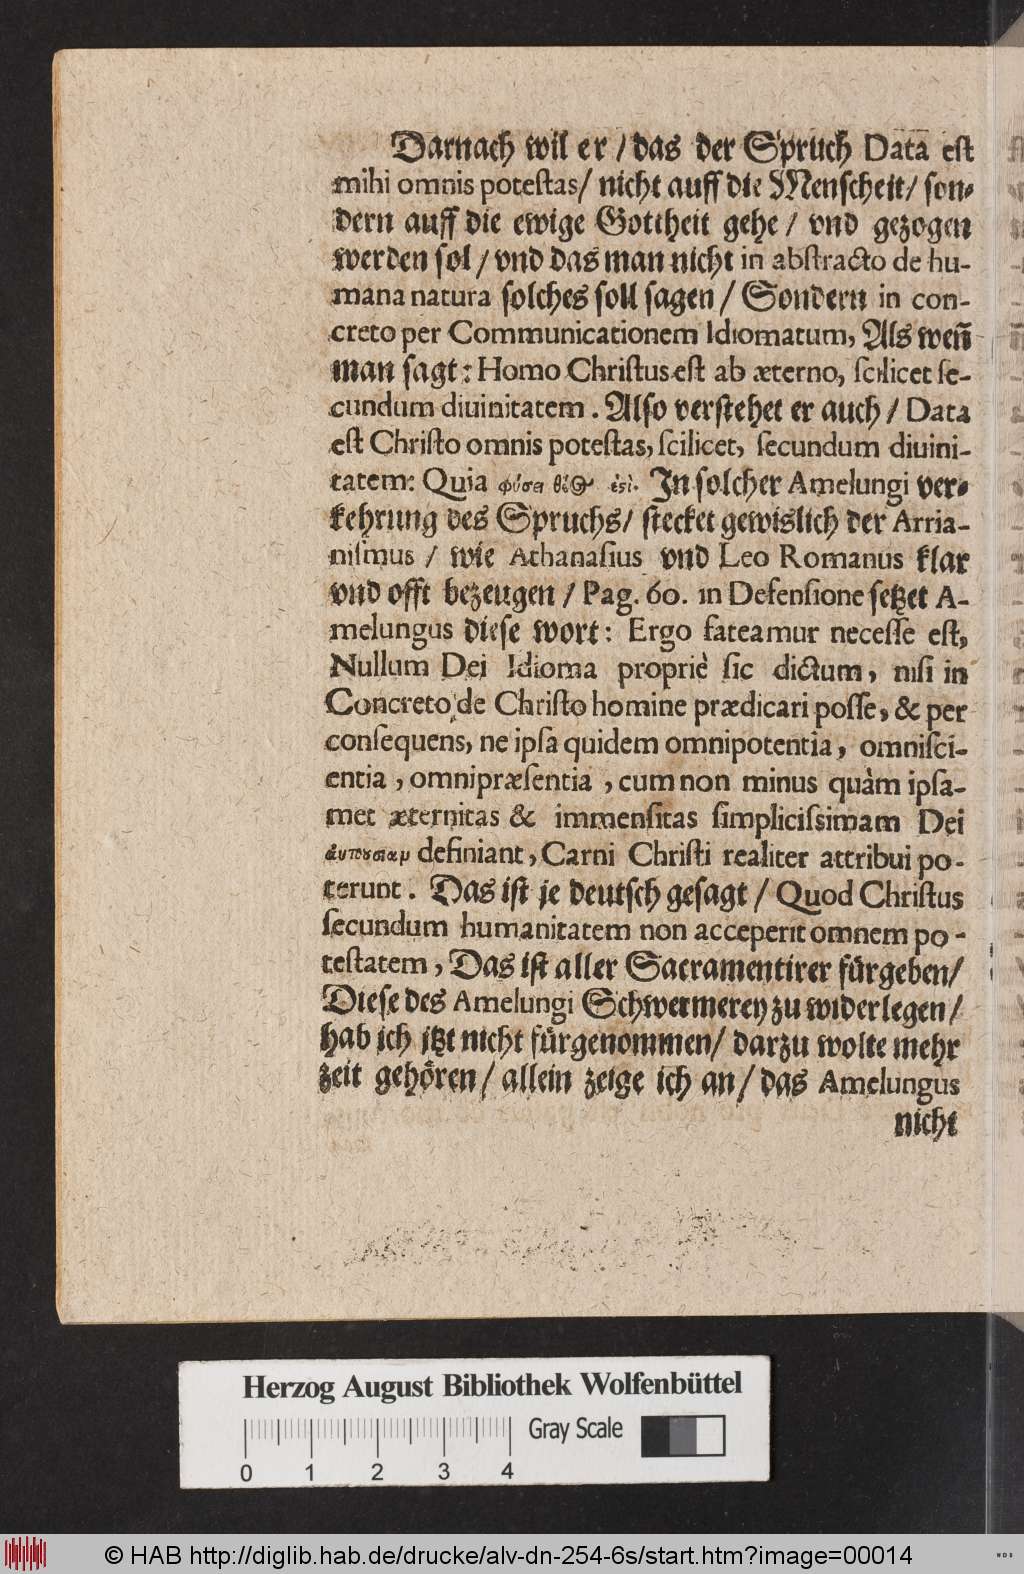 Darnach wil er / das der Spruch Data est
mihi omnis potestas / nicht auff die Menscheit / son-
dern auff die ewige Gottheit gehe / vnd gezogen
werden sol / vnd das man nicht in abstracto de hu-
mana natura solches soll sagen / Sondern in con-
creto per Communicationem Idiomatum, Als weñ
man sagt: Homo Christus est ab æterno, scilicet se-
cundum diuinitatem. Also verstehet er auch / Data
est Christo omnis potestas, scilicet, secundum diuini-
tatem: Quia φύσει θεός ἐστί. In solcher Amelungi ver-
kehrung des Spruchs / stecket gewislich der Arria-
nismus / wie Athanasius vnd Leo Romanus klar
vnd offt bezeugen / Pag. 60. in Defensione setzet A-
melungus diese wort: Ergo fateamur necesse est,
Nullum Dei Idioma propriè sic dictum, nisi in
Concreto de Christo homine prædicari posse, & per
consequens, ne ipsa quidem omnipotentia, omnisci-
entia, omnipræsentia, cum non minus quàm ipsa-
met æternitas & immensitas simplicissimam Dei
ἀυτουσίαν definiant, Carni Christi realiter attribui po-
terunt. Das ist je deutsch gesagt / Quod Christus
secundum humanitatem non acceperit omnem po-
testatem, Das ist aller Sacramentirer fürgeben /
Diese des Amelungi Schwermerey zu widerlegen /
hab ich itzt nicht fürgenommen / darzu wolte mehr
zeit gehören / allein zeige ich an / das Amelungus
nicht
Herzog August Bibliothek Wolfenbüttel
Gray Scale
0 1 2 3 4
© HAB http://diglib.hab.de/drucke/alv-dn-254-6s/start.htm?image=00014